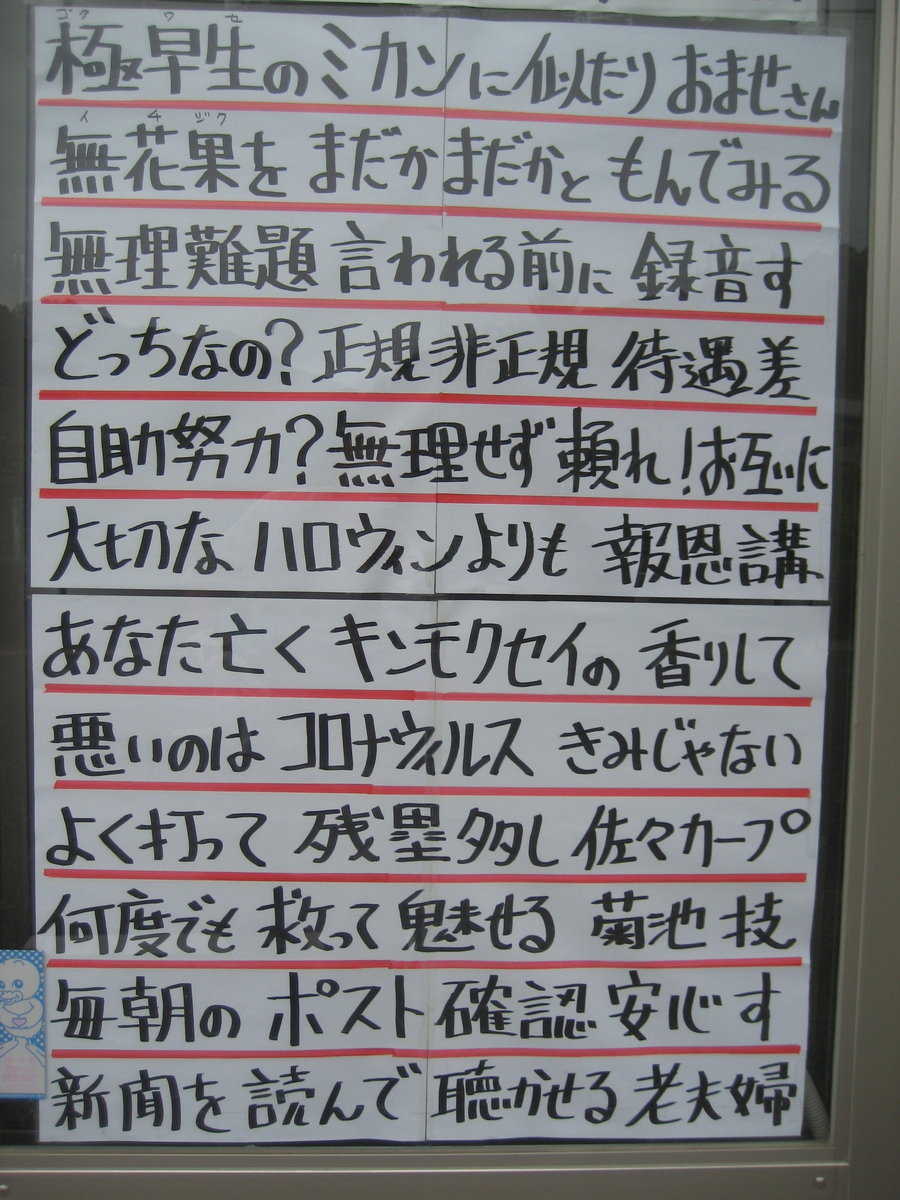 ゴク ワ セ
極早生の ミカンに似たり おませさん
イ チ ジク
無花果を まだかまだかと もんでみる
無理難題 言われる前に 録音す
どっちなの？正規非正規 待遇差
自助努力？無理せず頼れ！お互いに
大切な ハロウィンよりも 報恩講
あなた亡く キンモクセイの 香りして
悪いのは コロナウィルス きみじゃない
よく打って 残塁多し 佐々カープ
何度でも 救って魅せる 菊池 技
毎朝の ポスト確認 安心す
新聞を 読んで聴かせる 老夫婦